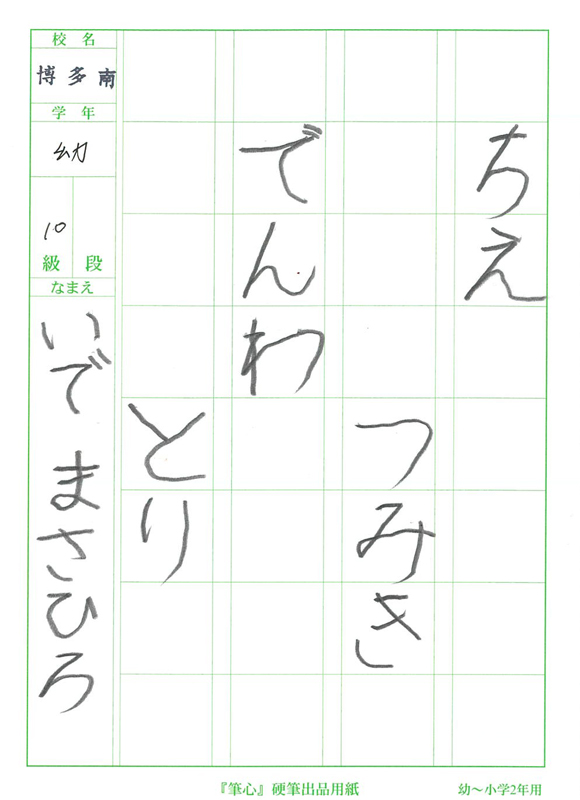 ちえ
つみき
でんわ
とり
校名
博多南
学年
幼
10
級段
なまえ
いでまさひろ
『筆心』硬筆出品用紙
幼～小学2年用